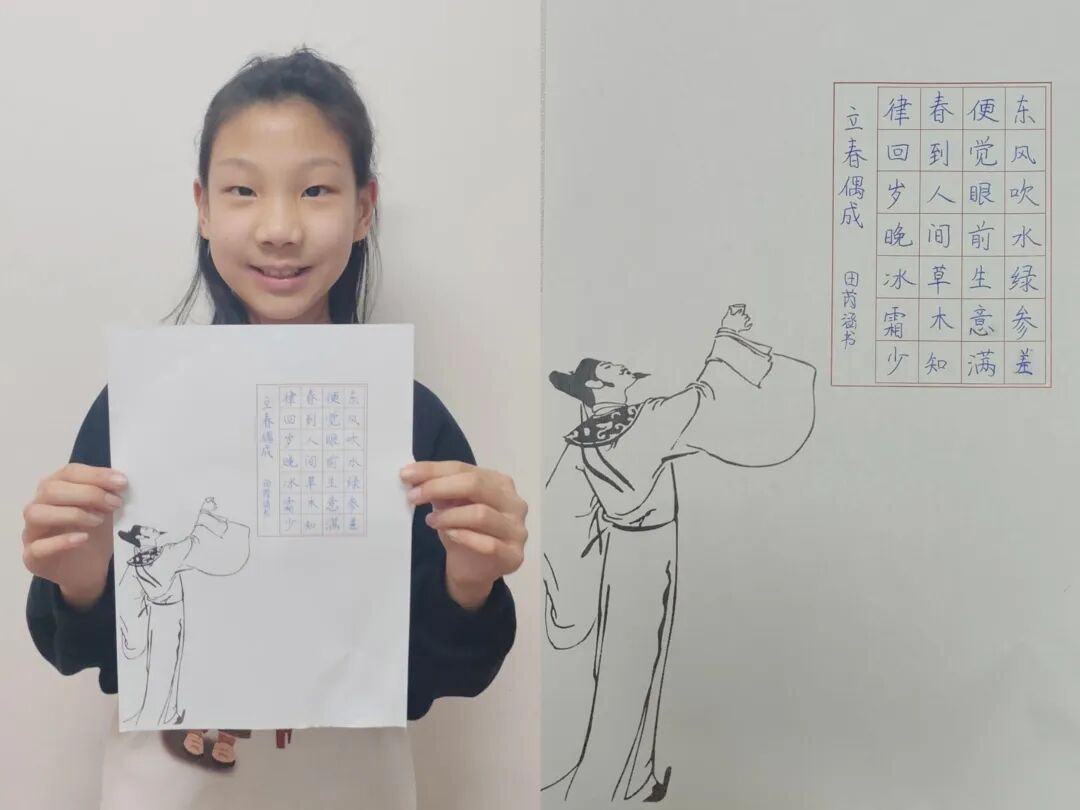 立春偶成 田芮涵书
律回岁晚冰霜少
春到人间草木知
便觉眼前生意满
东风吹水绿参差
立春偶成 田芮涵书
律回岁晚冰霜少
春到人间草木知
便觉眼前生意满
东风吹水绿参差